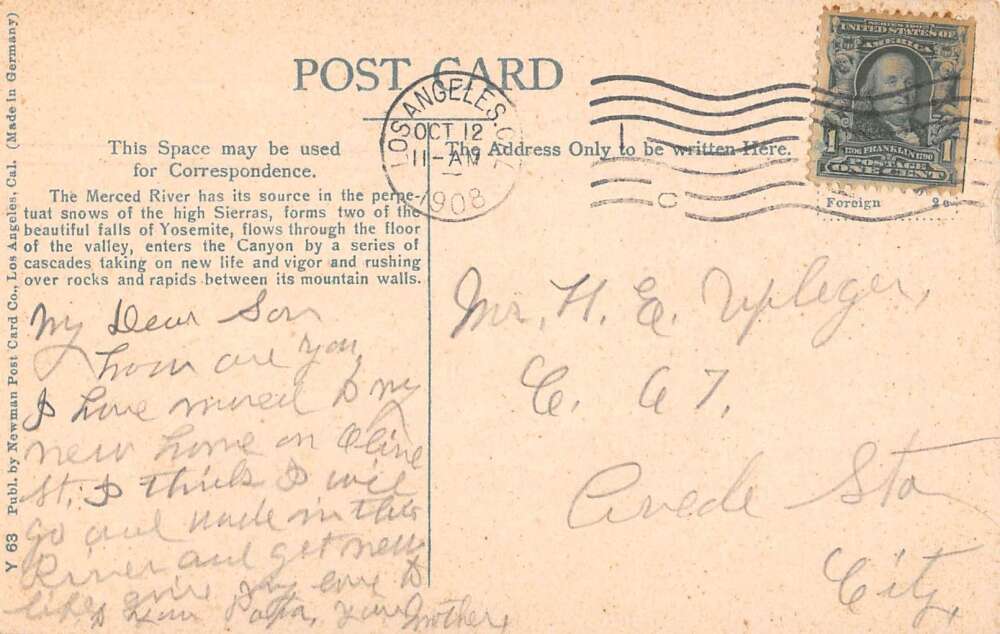 POST CARD
LOS ANGELES, C
OCT 12
11-AM
1908
SERIES 1902
UNITED STATES OF
AMERICA
1706 FRANKLIN 1790
1 1
POSTAGE
ONE CENT
Foreign 2c
This Space may be used
for Correspondence.
The Address Only to be written Here.
The Merced River has its source in the perpe-
tuat snows of the high Sierras, forms two of the
beautiful falls of Yosemite, flows through the floor
of the valley, enters the Canyon by a series of
cascades taking on new life and vigor and rushing
over rocks and rapids between its mountain walls.
My Dear Son
how are you,
I have moved to my
new home on Olive
St, I think I will
go and wade in this
River and get new
life, give my love to
Your Papa, Your Mother,
Mr. H. E. Upleger,
C. 67.
Arcade Sta
City,
Y 63 Publ. by Newman Post Card Co., Los Angeles, Cal. (Made in Germany)